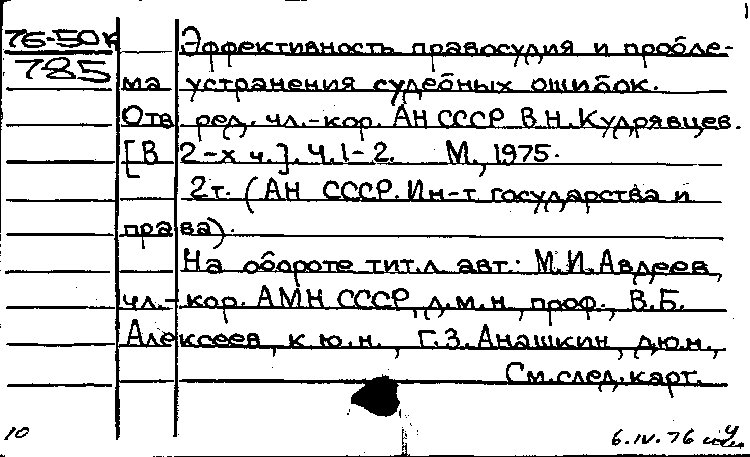 76-50к Эффективность правосудия и пробле-
785
ма устранения судебных ошибок.
Отв. ред. чл.-кор. АН СССР В.Н.Кудрявцев.
[В 2-х ч.]. Ч.1-2. М., 1975.
2т. (АН СССР. Ин-т государства и
права).
На обороте тит.л. авт.: М.И.Авдеев,
чл.-кор. АМН СССР, д.м.н, проф., В.Б.
Алексеев, к.ю.н., Г.З.Анашкин, д.ю.н.,
См.след.карт.
10 6.IV.76